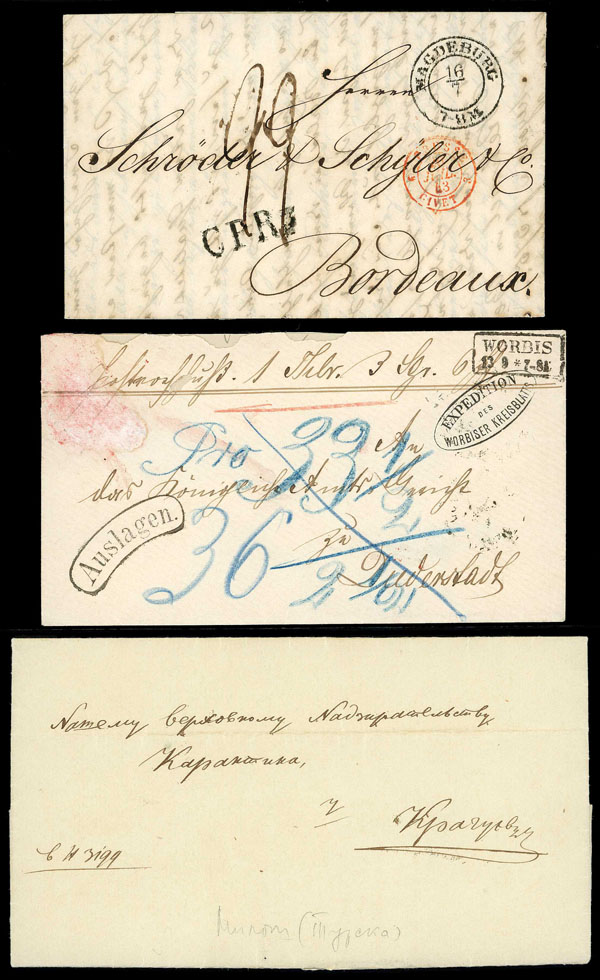 MAGDEBURG
16
7
7-8 M
Herren
Schröder & Schÿler & Co.
43
GIVET
CPR3
Bordeaux.
1 Thlr. 3 Sgr. 6
WORBIS
13 9 * 7-8
EXPEDITION
DES
WORBISER KREISBLATTS
Pro 33 1/2
An
das Königliche Amts-Gericht
Auslagen.
zu
36
Duderstadt
Нашему верховному Надзирательству
Карантина,
у
Крагуевцу
3199
(Турска)